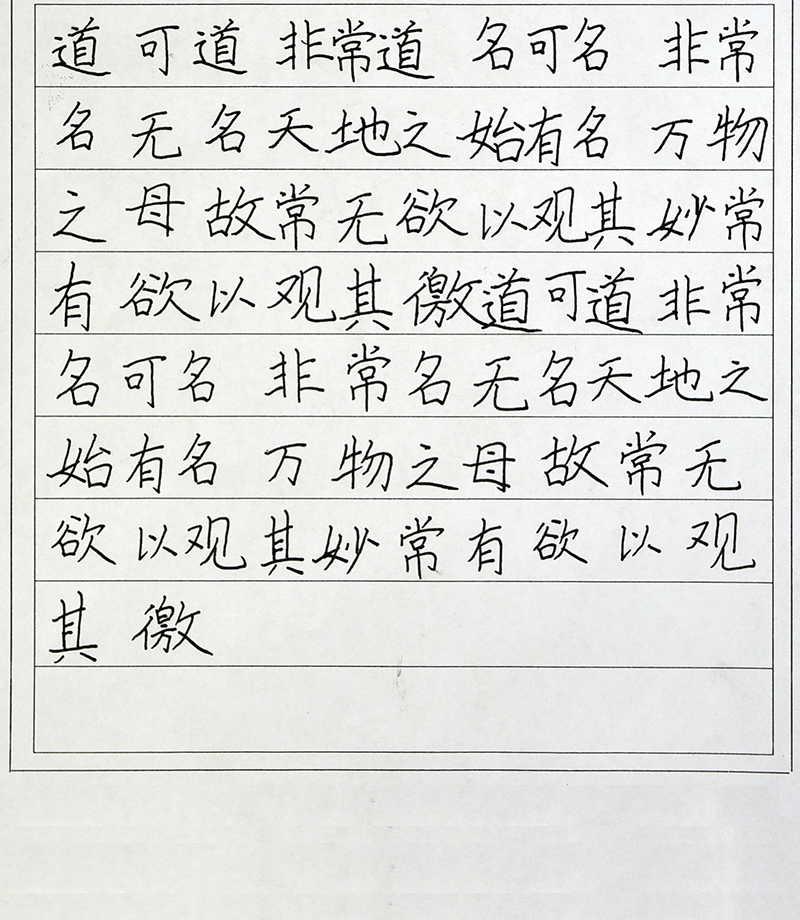 道可道非常道名可名非常
名无名天地之始有名万物
之母故常无欲以观其妙常
有欲以观其徼道可道非常
名可名非常名无名天地之
始有名万物之母故常无
欲以观其妙常有欲以观
其徼